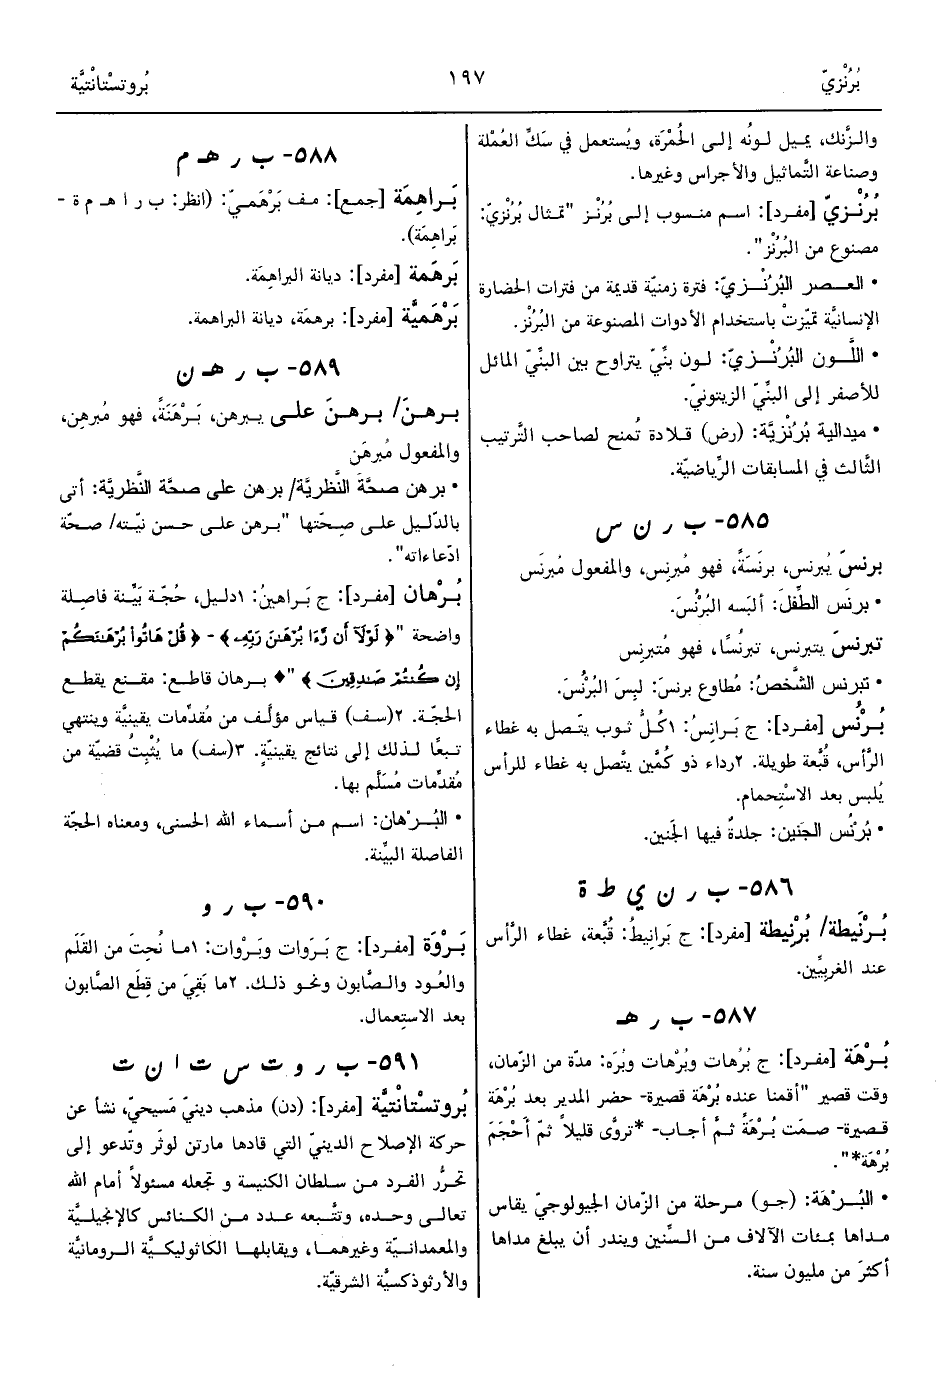 بُرُنْزيّ
١٩٧
بُروتستانْتيَّة
والزَّنك، يميل لونُه إلى الحُمْرَة، ويُستعمل في سَكِّ العُمْلة
وصناعة التَّماثيل والأجراس وغيرها.
بُرُنْـزيّ [مفرد]: اسم منسوب إلى بُرُنْز "تمثال بُرُنْزيّ:
مصنوع من البُرُنْز".
• العـصر البُرُنْـزيّ: فترة زمنيّة قديمة من فترات الحضارة
الإنسانيَّة تميّزتْ باستخدام الأدوات المصنوعة من البُرُنْز.
• اللَّـون البُرُنْـزيّ: لـون بنَّيّ يتراوح بين البنَّيّ المائل
للأصفر إلى البنَّيّ الزيتونيّ.
• ميدالية بُرُنْزيَّة: (رض) قـلادة تُمنح لصاحب التَّرتيب
الثَّالث في المسابقات الرِّياضيّة.
٥٨٥- ب ر ن س
برنسَ يُبرنس، برنَسَةً، فهو مُبرنِس، والمفعول مُبرنَس
• برنَس الطِّفلَ: ألبسه البُرْنُسَ.
تبرنسَ يتبرنس، تبرنُسًا، فهو مُتبرنِس
• تبرنس الشَّخصُ: مُطاوع برنسَ: لبِسَ البُرْنُسَ.
بُـرْنُس [مفرد]: ج بَـرانِسُ: ١كُلُّ ثوب يتّـصل به غطاء
الرَّأس، قُبَّعة طويلة. ٢رداء ذو كُمَّين يتَّصل به غطاء للرأس
يُلبس بعد الاسْتِحمام.
• بُرْنُس الجَنين: جلدةٌ فيها الجَنين.
٥٨٦- ب ر ن ي ط ة
بُـرْنَيطة/ بُرْنِيطة [مفرد]: ج بَرانِيطُ: قُبَّعة، غطاء الرَّأس
عند الغربيِّين.
٥٨٧- ب ر هـ
بُـرْهَة [مفرد]: ج بُرُهات وبُرْهات وبُرَه: مدّة من الزّمان،
وقت قصير "أقمنا عنده بُرْهَة قصيرة- حضر المدير بعد بُرْهَة
قـصيرة- صـمَت بُـرْهَةً ثـمَّ أجـاب- *تروَّى قليلاً ثمّ أَحْجَمَ
بُرْهَة*".
• البُـرْهَة: (جـو) مـرحلة من الزّمان الجيولوجيّ يقاس
مـداها بمـئات الآلاف مـن الـسِّنين ويندر أن يبلغ مداها
أكثرَ من مليون سنة.
٥٨٨- ب ر هـ م
بَـراهِمَة [جمع]: مـف بَرْهَمـيّ: (انظر: ب ر ا هـ م ة -
بَراهِمَة).
بَرهَمة [مفرد]: ديانة البراهِمَة.
بَرْهَميَّة [مفرد]: برهمَة، ديانة البراهمة.
٥٨٩- ب ر هـ ن
بـرهنَ/ بـرهنَ علـى يبرهن، بَـرْهَنَةً، فهو مُبرهِن،
والمفعول مُبرهَن
• برهن صحَّةَ النَّظريَّة/ برهن على صحَّة النَّظريَّة: أتى
بالدّليل علـى صِـحّتها "بـرهن علـى حـسن نيّـته/ صـحَّة
ادّعاءاته".
بُـرْهَان [مفرد]: ج بَـراهينُ: ١دليل، حُجّة بيِّـنة فاصـلة
واضحة "﴿لَوْلَآ أَن رَّءَا بُرْهَٰنَ رَبِّهِۦ﴾ - ﴿قُلْ هَاتُوا۟ بُرْهَٰنَكُمْ
إِن كُنتُمْ صَٰدِقِينَ﴾" ♦ بـرهان قاطـع: مقـنع يقطـع
الحجّـة. ٢(سف) قـياس مؤلَّـف من مُقدِّمات يقينيَّة وينتهي
تـبعًا لـذلك إلى نتائج يقينيَّة. ٣(سف) ما يُثْبِتُ قضيّة من
مُقدِّمات مُسَلَّم بها.
• البُـرْهَان: اسـم مـن أسـماء الله الحسنى، ومعناه الحجّة
الفاصلة البيِّنة.
٥٩٠- ب ر و
بَـرْوَة [مفرد]: ج بَـرَوات وبَـرْوات: ١مـا نُحِتَ من القَلَم
والعُود والـصَّابون ونحـو ذلـك. ٢ما بَقِيَ من قِطَع الصَّابون
بعد الاستِعمال.
٥٩١- ب ر و ت س ت ا ن ت
بُروتستانْتيَّة [مفرد]: (دن) مذهب دينيّ مَسيحيّ، نشأ عن
حركة الإصلاح الدينيّ التي قادها مارتن لوثَر وتَدعو إلى
تحرُّر الفرد مـن سـلطان الكنيسة و تجعله مسئولاً أمام الله
تعالـى وحـده، وتتَّـبعه عـدد مـن الكـنائس كالإنجيلـيَّة
والمعمدانـيَّة وغيرهمـا، ويقابلهـا الكاثوليكـيَّة الـرومانيَّة
والأرثوذكسيَّة الشرقيّة.